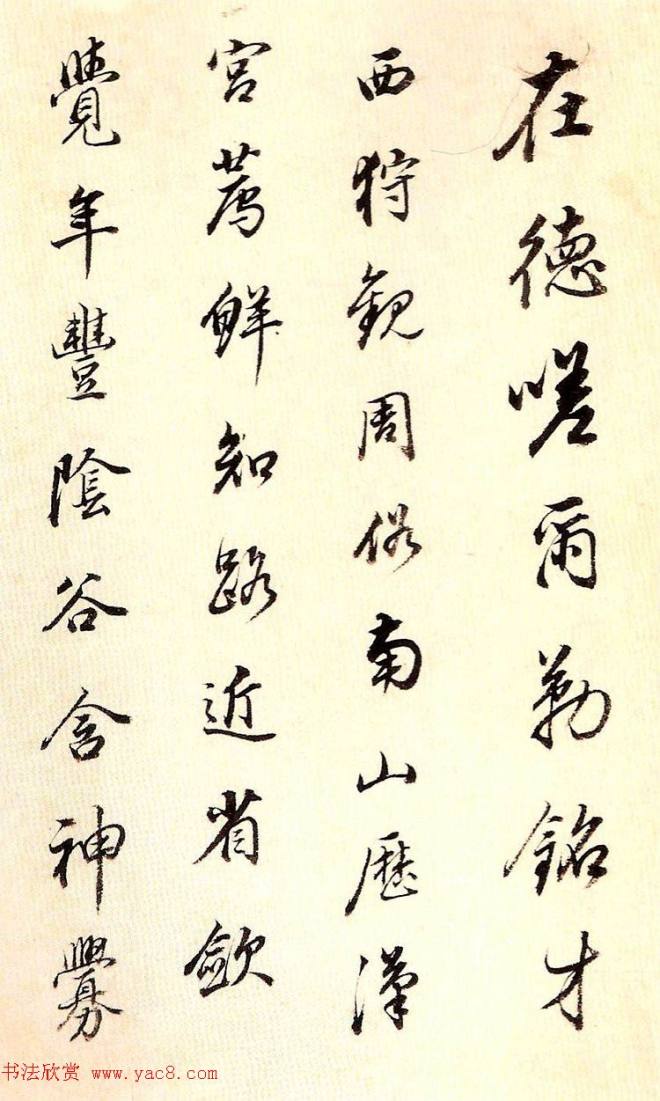 在德嗟爾勒銘才
西狩觀周俗南山歷漢
宮薦鮮知路近省斂
覺年豐陰谷含神爨
书法欣赏 www.yac8.com